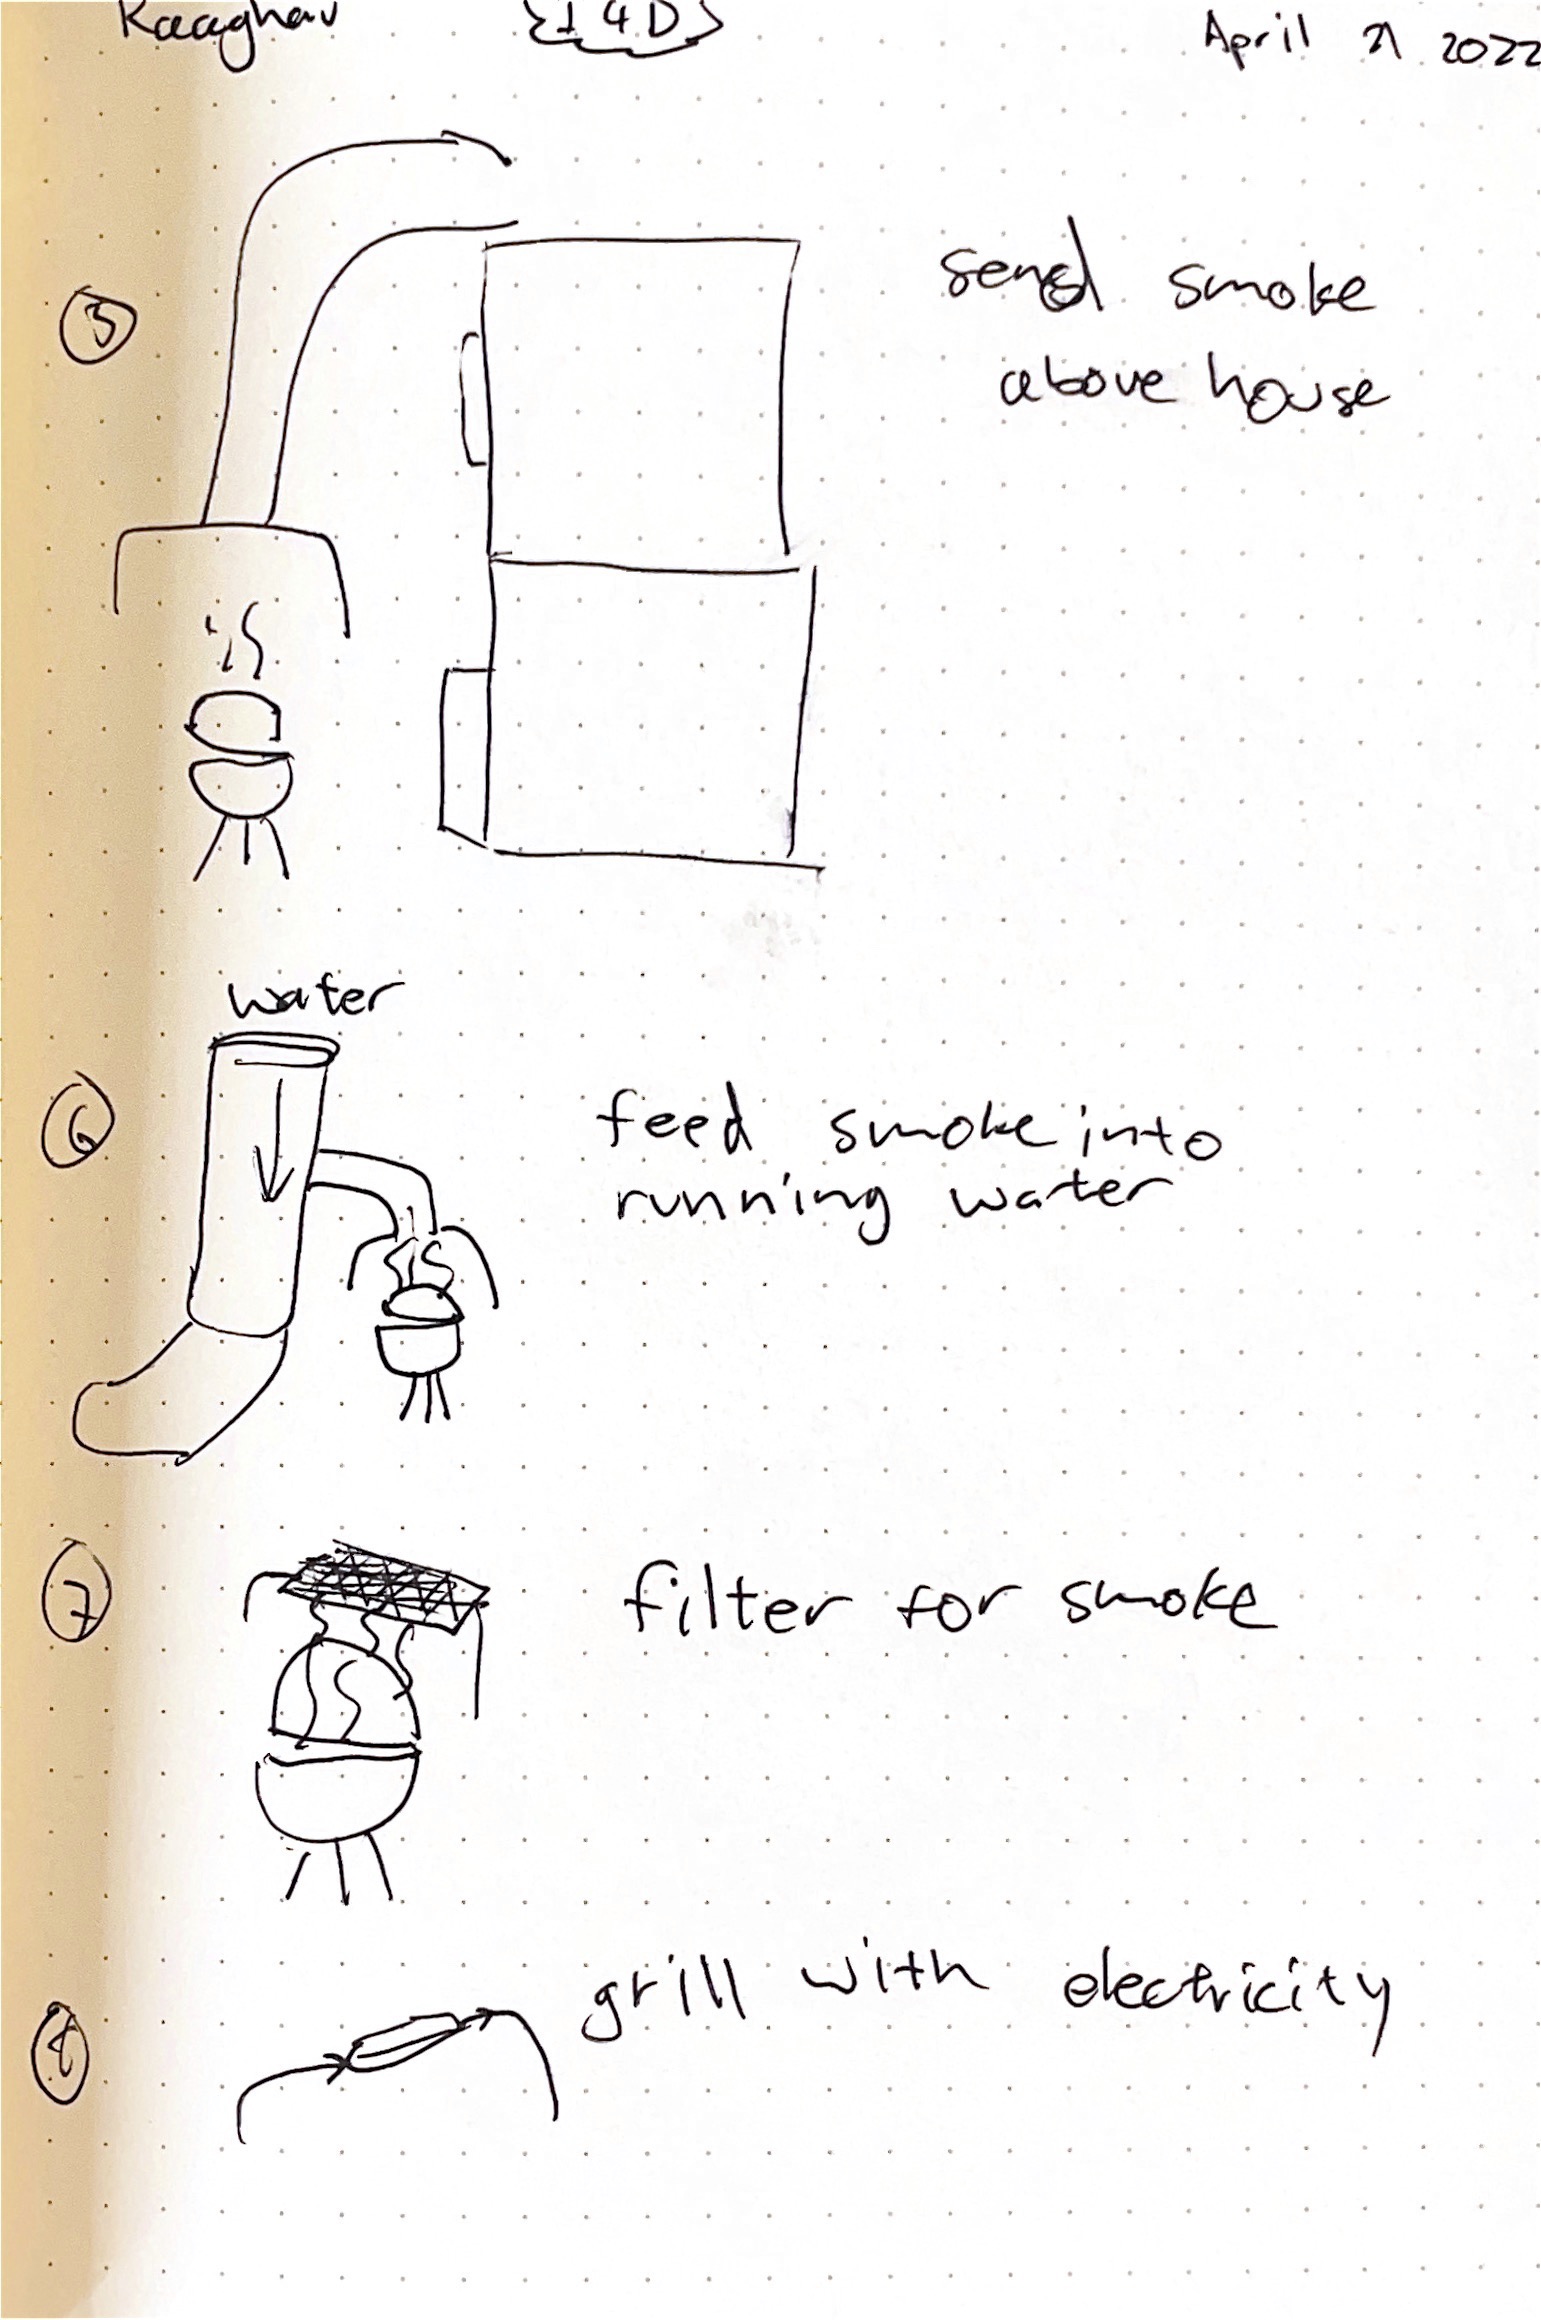 Raaghav {I4D} April 21 2022
5
send smoke
above house
water
6
feed smoke into
running water
7
filter for smoke
8
grill with electricity